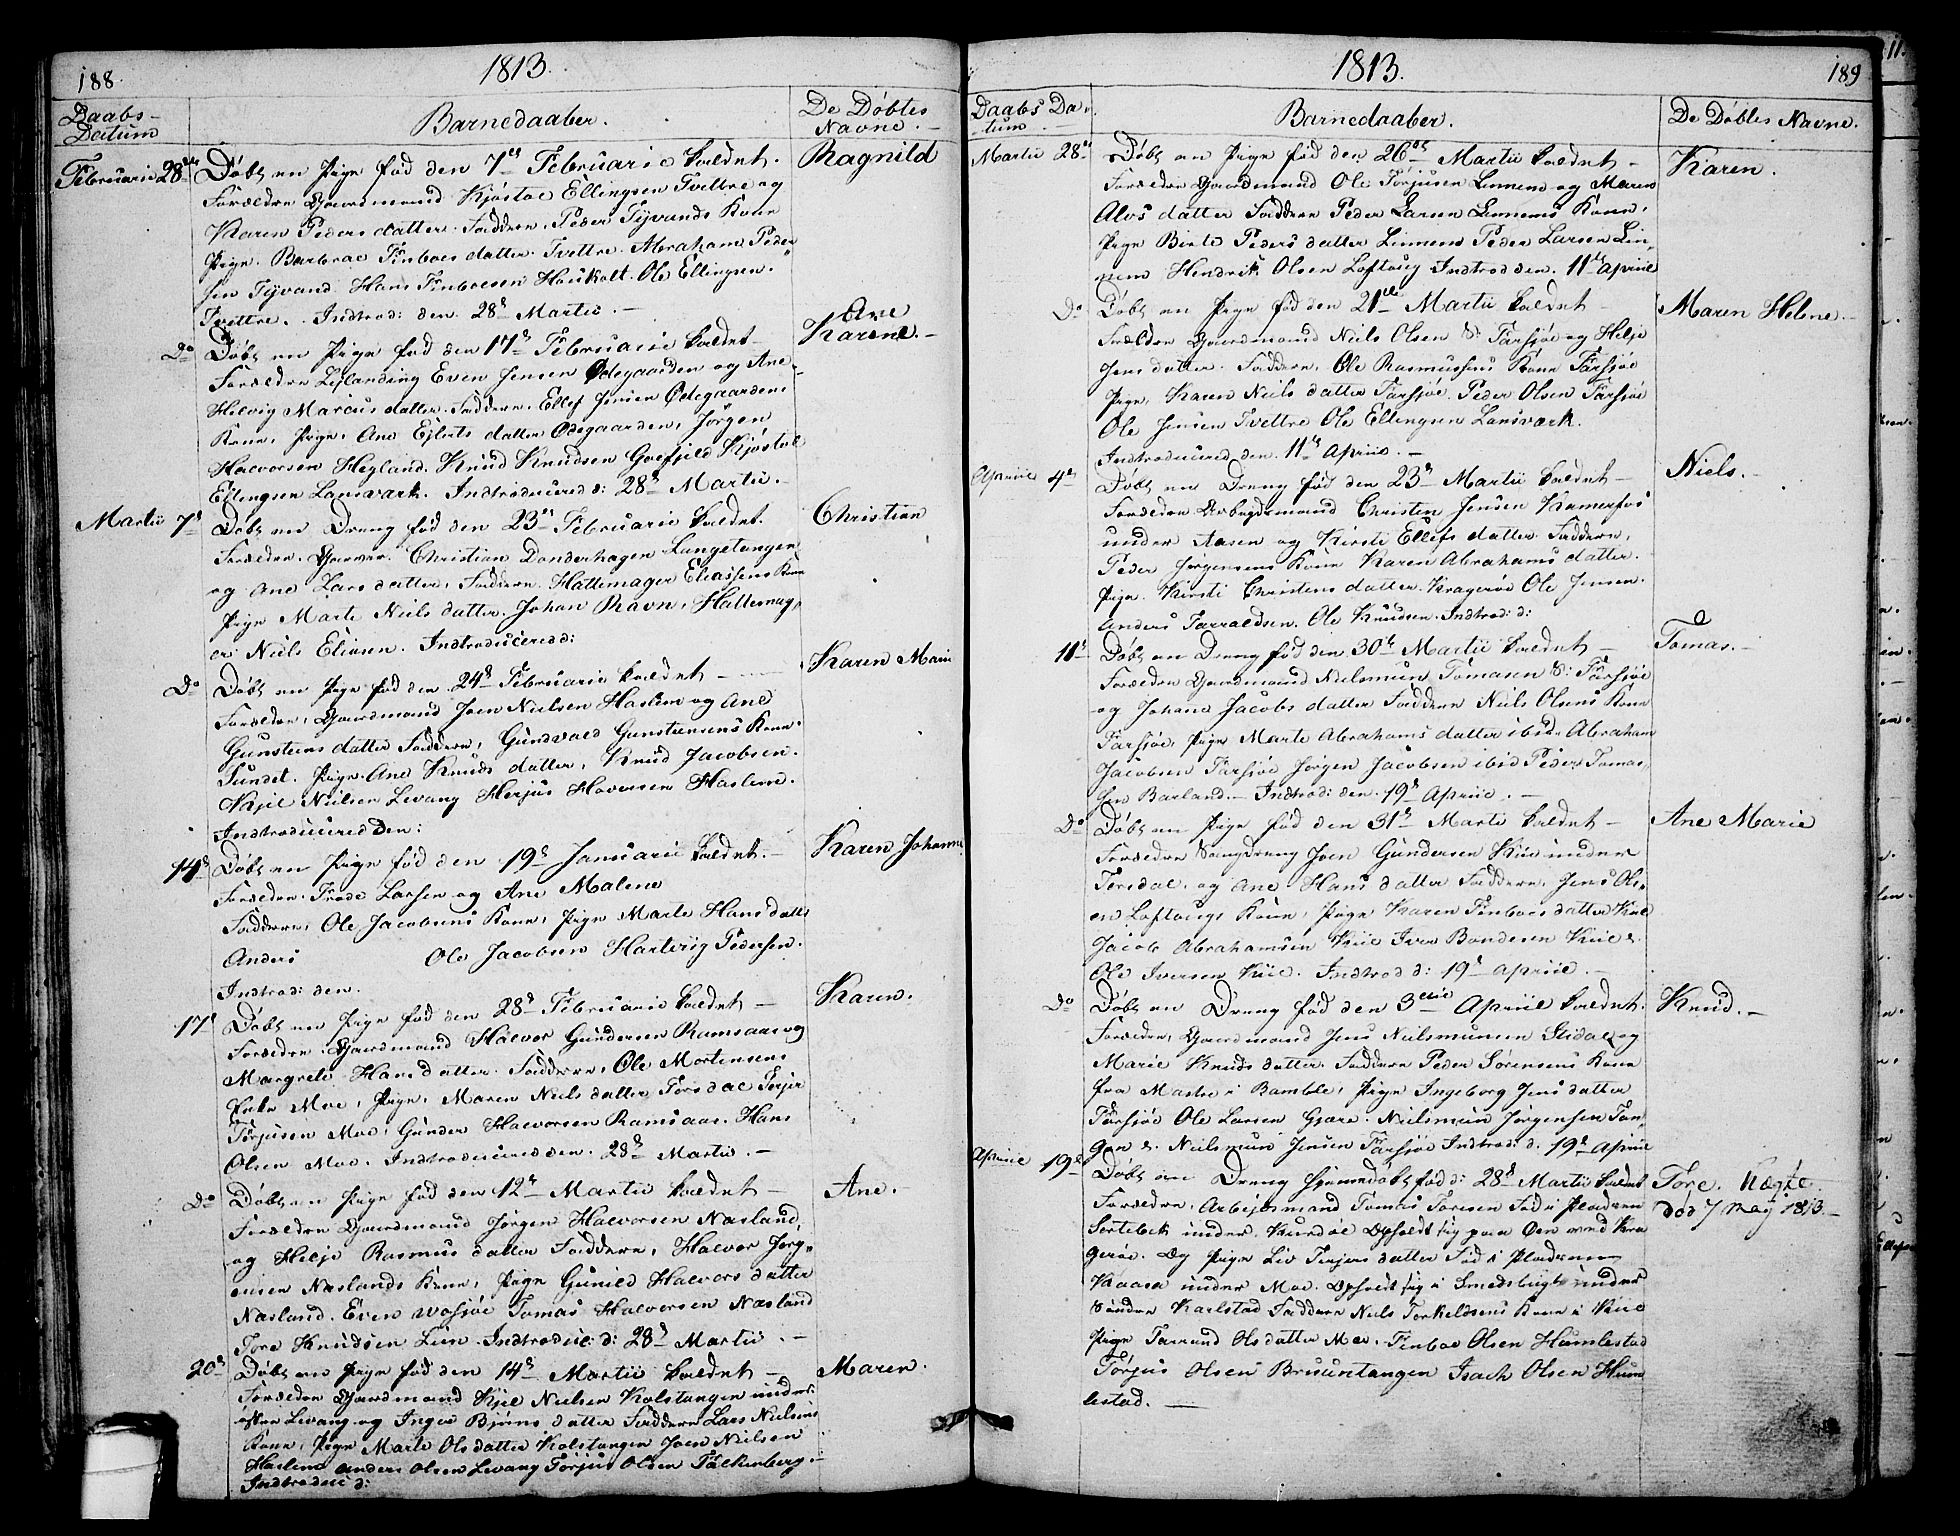 188.
1813.
Daabs-
Datum
Barnedaaber.
De Døbtes
Navne.
Februarie 28de
Døbt en Pige fød den 7de Februarie kaldet.
Ragnild
Forældre Gaardmand Kjøstol Ellingsen Tvettre og
Karen Peders datter. Faddere. Peder Tyvands Kone
Pige. Barbroe Finboes datter. Tvettre. Abraham Peder
sen Tyvand Hans Finboesen Houkolt. Ole Ellingsen.
Tvettre. Introd: den 28de Martii. —
Do
Døbt en Pige fød den 17de Februarie kaldet —
Ane
Karene. —
Forældre Even Jensen Ødegaarden og Ane
Helvig Marcus datter. Faddere. Ellef Jensen Ødegaardens
Kone, Pige. Ane Ejlerts datter Ødegaarden, Jørgen
Halvorsen Hegland. Knud Knudsen Gofjeld Kjøstol
Ellingsen Lansværk. Indtroducered d: 28de Martii. —
Martii 7de
Døbt en Dreng fød den 23de Februarie kaldet.
Christian
Forældre. Christian Donderhagen Langetangen
og Ane Lars datter, Faddere. Hattemager Eliassens Kone
Pige Marte Niels datter. Johan Ravn, Hattemag
er Niels Eliasen. Indtroducered d:
Do
Døbt en Pige fød den 24de Februarie kaldet —
Karen Marie
Forældre, Gaardmand Joen Nielsen Haslem og Ane
Gunsteens datter Faddere, Gundvald Gunsteensens Kone
Sundet. Pige. Ane Knuds datter, Knud Jacobsen.
Kjel Nielsen Levang Herjus Haversen Haslem.
Indtroducered den:
14de
Døbt en Pige fød den 19de Januarii kaldet. —
Karen Johanne
Forældre. Frode Larsen og Ane Malene
Faddere, Ole Jacobsens Kone, Pige Marte Hans datter
Anders Ole Jacobsen Hartvig Pedersen.
Indtrod: den.
17de
Døbt en Pige fød den 28de Februarie kaldet —
Karen.
Forældre. Gaardmand Halvor Gundersen Ramsaas og
Margrete Hans datter. Faddere, Ole Mortensens
Enke Moe, Pige, Maren Niels datter Torsdal Terjer
Tørjusen Moe, Gunder Halvorsen Ramsaas. Hans
Olsen Moe. Indtroducered den. 28de Martii. —
Do
Døbt en Pige fød den 12de Martii kaldet —
Ane. —
Forældre Gaardmand Jørgen Halvorsen Næsland,
og Helje Rasmus datter Faddere, Halvor Jørg-
ensen Næslands Kone, Pige Gunild Halvors datter
Næsland. Even Vosjøe Tomas Halvorsen Næsland
Tore Knudsen Lien. Indtroduc: d: 28de Martii. —
20de
Døbt en Pige fød den 14de Martii kaldet —
Maren.
Forældre Gaardmand Kjel Nielsen Kolstangen under
Levang og Inger Bjørns datter Faddere Lars Nielsens
Kone, Pige Marte Ols datter Kolstangen Joen Nielsen
Haslem Anders Olsen Levang Tørjus Olsen Falkenberg. —
Indtroduc d:
1813.
189
Daabs Da-
tum
Barnedaaber.
De Døbtes Navne.
Martii 28de
Døbt en Pige fød den 26de Martii kaldet —
Karen.
Forældre Gaardmand Ole Tørjusen Linnem og Maren
Alos datter Faddere Peder Larsen Linnems Kone,
Pige Birte Peders datter Linnem Peder Larsen Lin-
nem Hendrik Olsen Loftoug Indtrod den. 11de Apriil
Do
Døbt en Pige fød den 21de Martii kaldet —
Maren Helene. —
Forældre Gaardmand Niels Olsen S: Farsjøe og Helje
Jens datter. Faddere, Ole Rasmusens Kone Farsjøe
Pige, Karen Niels datter Farsjøe. Peder Olsen Farsjøe
Ole Jensen Tvettre Ole Ellingsen Lansværk.
Indtroducered den. 11de Apriil. —
Apriil 4de
Døbt en Dreng fød den 23de Martii kaldet —
Niels. —
Forældre Arbejdsmand Christen Jensen Kamerfos
under Aasen og Kirsti Ellefs datter. Faddere,
Peder Jørgensens Kone Karen Abrahams datter.
Pige. Kirsti Christens datter. Kragerøe Ole Jensen.
Anders Tarraldsen. Ole Knudsen. Indtrod: d:
11te
Døbt en Dreng fød den 30te Martii kaldet —
Tomas. —
Forældre Gaardmand Nielsmun Tomasen S: Farsjøe
og Johane Jacobs datter Faddere Niels Olsens Kone
Farsjøe, Pige Marte Abrahams datter ibid. Abraham
Jacobsen Farsjøe Jørgen Jacobsen ibid Peder Tomas,
sen Barland. — Indtrod: den. 19de Apriil. —
Do
Døbt en Pige fød den 31te Martii kaldet —
Ane Marie
Forældre Joen Gundersen Kiil under
Torsdal. og Ane Hans datter Faddere, Jens Ols-
en Loftougs Kone, Pige Karen Finboes datter Kiil
Jacob Abrahamsen Kiil Iver Bondesen Kiil &
Ole Iversen Kiil. Indtrod d: 19de Apriil. —
Do
Døbt en Dreng fød den 3die Apriil kaldet.
Knud. —
Forældre, Gaardmand Jens Nielsmunsen Stidal og
Marie Knuds datter. Faddere Peder Sørensens Kone
fra Mastre i Bamble, Pige Ingeborg Jens datter
Farsjøe Ole Larsen Gjære. Nielsmun Jørgensen Tan-
gen & Nielsmun Jensen Farsjøe Indtrod: d: 19de Apriil
Apriil 19de
Døbt en Dreng hjemedøbt fød d: 28de Martii kaldet
Tore.
død 7 May 1813. —
Forældre, Arbejdsmand Tomas Toresen Fød i Pladsen
Sortebek under Kurdøl Opholdt sig paa Øen ved Kra
gerøe. Og Pige Liv Terjers datter Fød i Pladsen
Kaaasa under Moe. Opholdt sig i Smedsbugt under
Søndre Karlstad Faddere Niels Torkeldsens Kone i Kiil
Pige Tarrand Ols datter Moe. Finboe Olsen Humlestad
Tørjus Olsen Brusuntangen Isach Olsen Hum
lestad. —